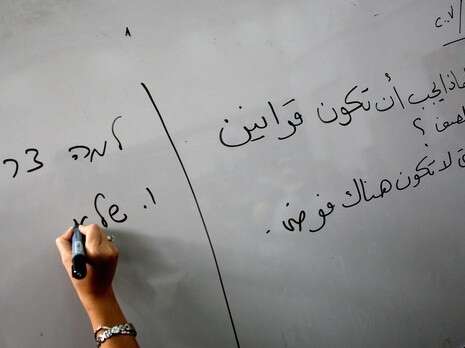 ماذا يجب أن تكون قوانين
لصف ؟
لا تكون هناك فوضى .
למה צר
1. שלא